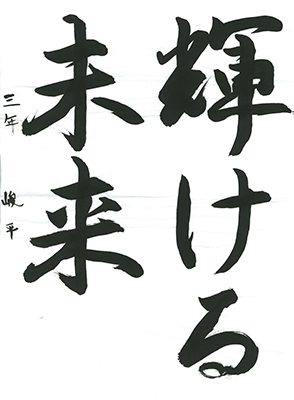 輝ける
未来
三年 峻平